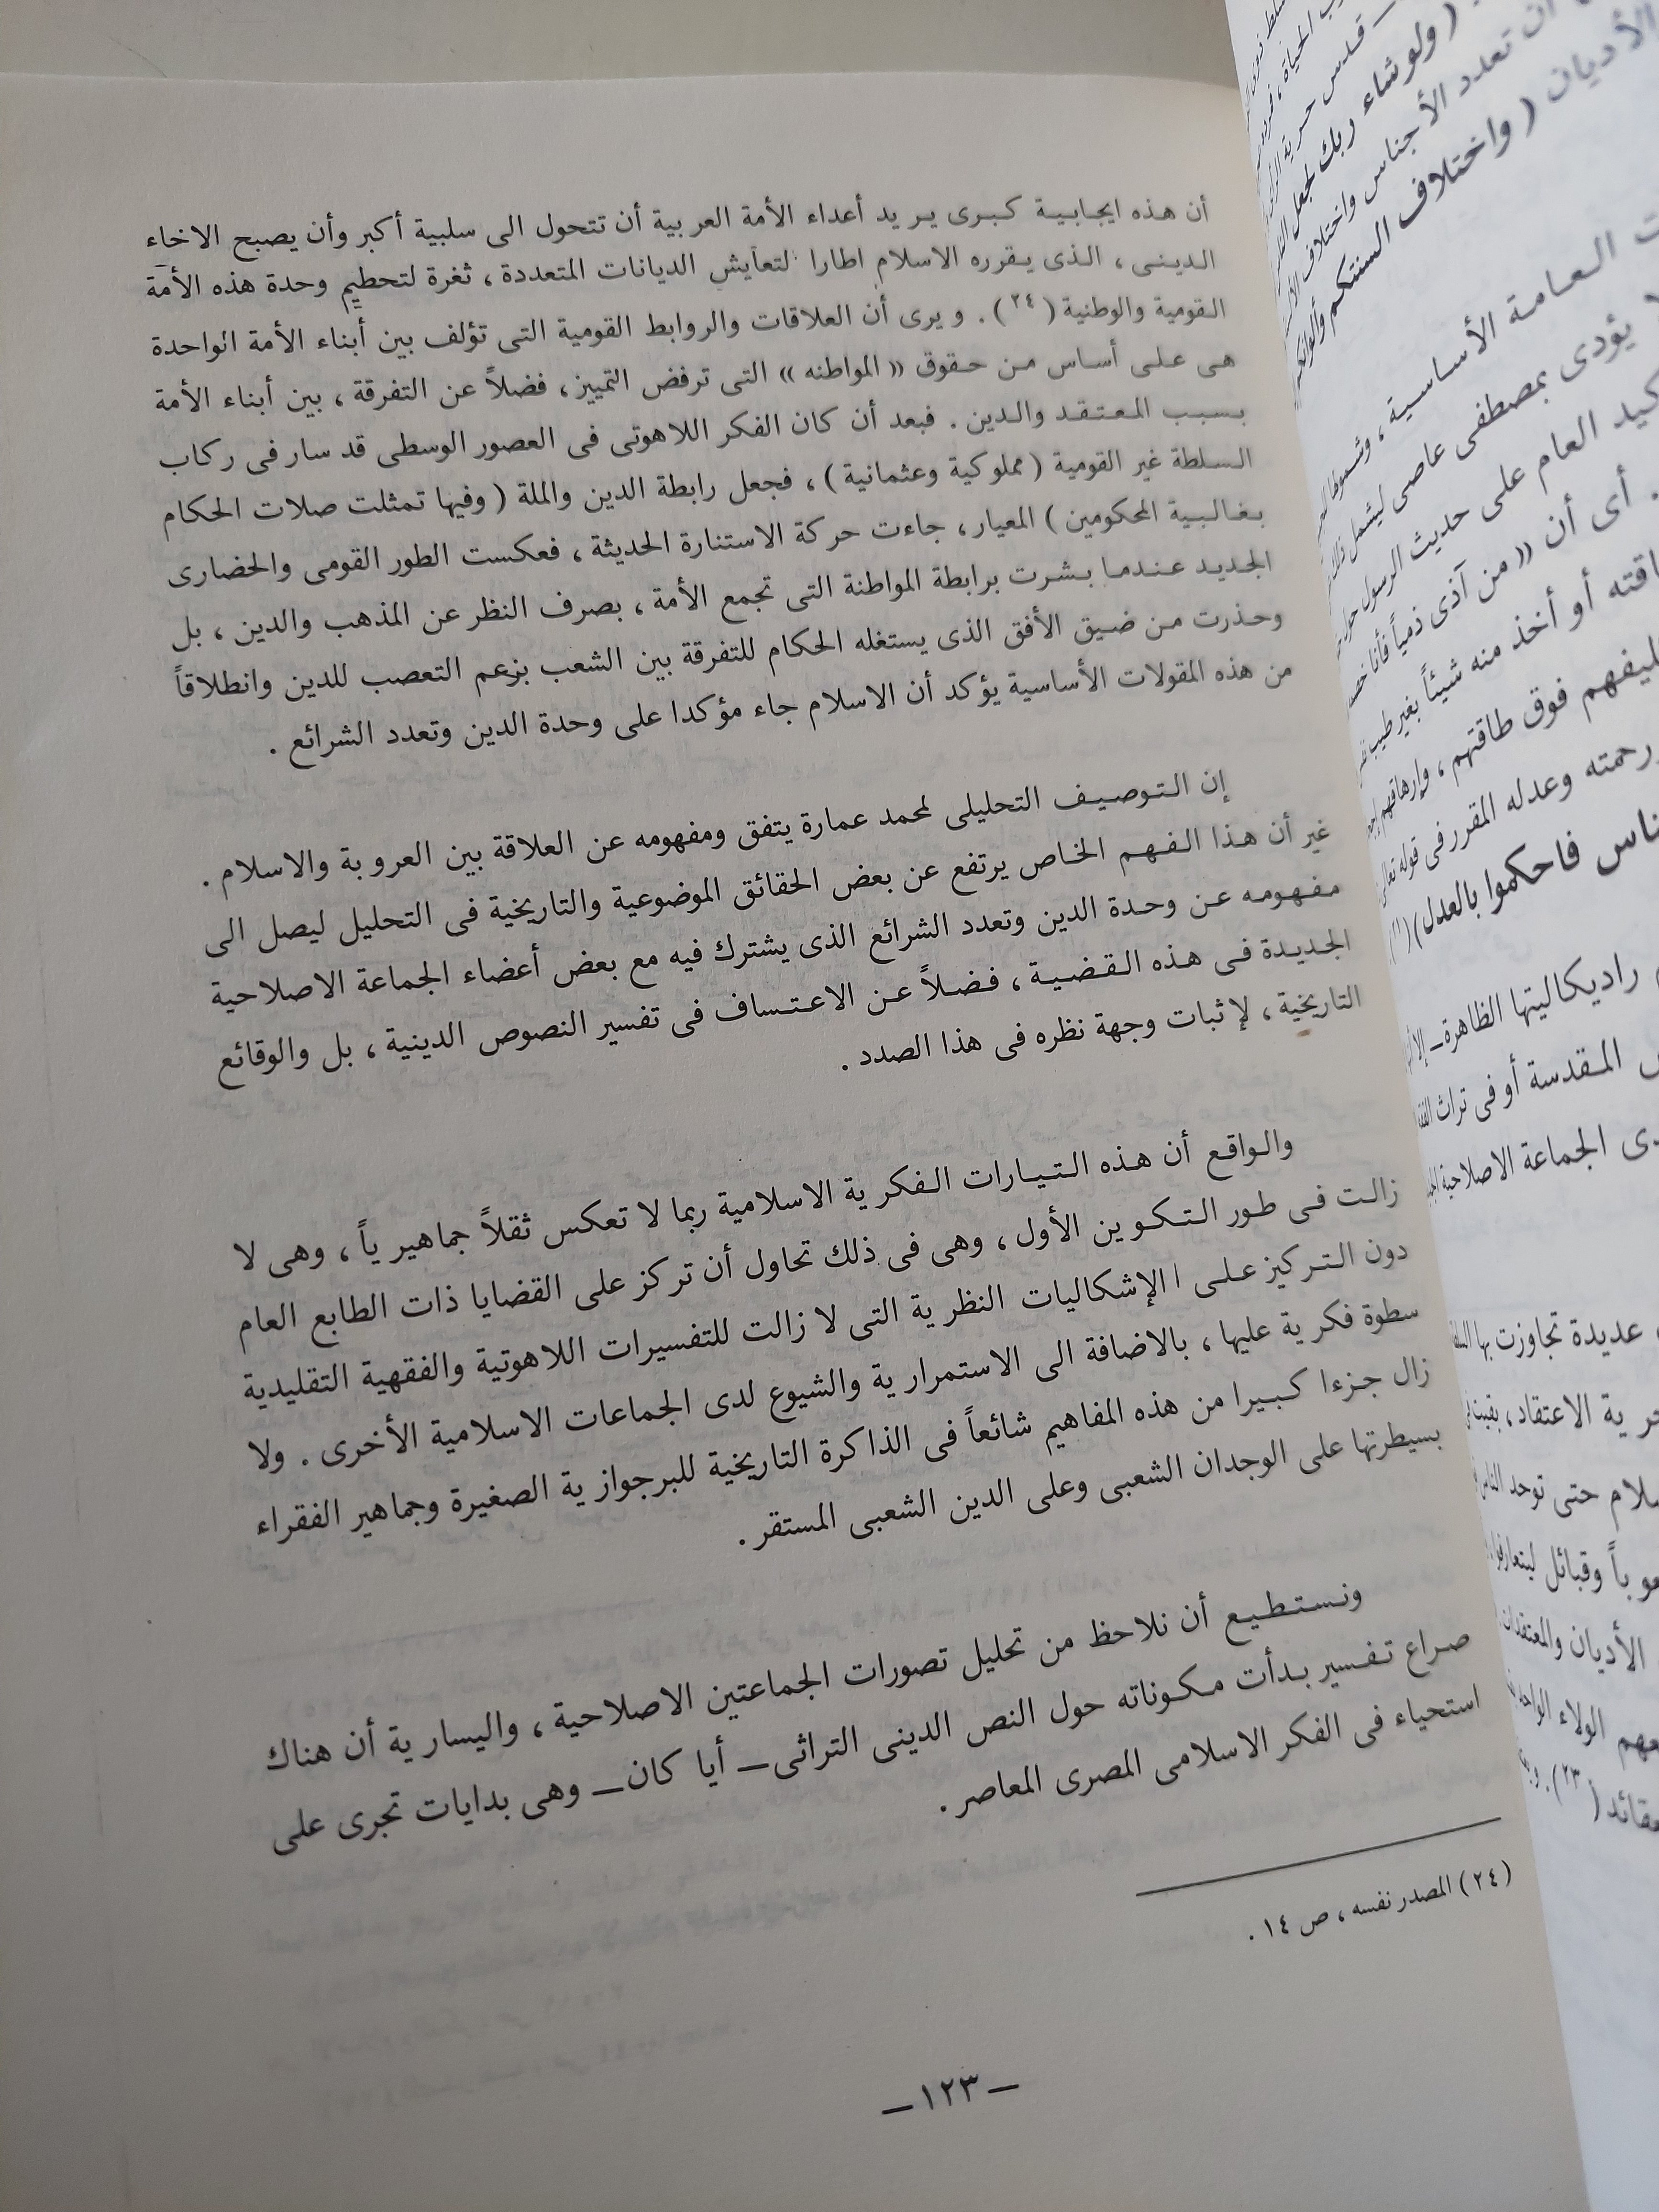 أن هذه ايجابية كبرى يريد أعداء الأمة العربية أن تتحول الى سلبية أكبر وأن يصبح الاخاء
الدينى ، الذى يقرره الاسلام اطارا لتعايش الديانات المتعددة ، ثغرة لتحطيم وحدة هذه الأمة
القومية والوطنية (٢٤) . ويرى أن العلاقات والروابط القومية التى تؤلف بين أبناء الأمة الواحدة
هى على أساس من حقوق « المواطنه » التى ترفض التمييز ، فضلاً عن التفرقة ، بين أبناء الأمة
بسبب المعتقد والدين . فبعد أن كان الفكر اللاهوتى فى العصور الوسطى قد سار فى ركاب
السلطة غير القومية ( مملوكية وعثمانية ) ، فجعل رابطة الدين والملة ( وفيها تمثلت صلات الحكام
بغالبية المحكومين ) المعيار ، جاءت حركة الاستنارة الحديثة ، فعكست الطور القومى والحضارى
الجديد عندما بشرت برابطة المواطنة التى تجمع الأمة ، بصرف النظر عن المذهب والدين ، بل
وحذرت من ضيق الأفق الذى يستغله الحكام للتفرقة بين الشعب بزعم التعصب للدين وانطلاقاً
من هذه المقولات الأساسية يؤكد أن الاسلام جاء مؤكدا على وحدة الدين وتعدد الشرائع .
إن التوصيف التحليلى لمحمد عمارة يتفق ومفهومه عن العلاقة بين العروبة والاسلام .
غير أن هذا الفهم الخاص يرتفع عن بعض الحقائق الموضوعية والتاريخية فى التحليل ليصل الى
مفهومه عن وحدة الدين وتعدد الشرائع الذى يشترك فيه مع بعض أعضاء الجماعة الاصلاحية
الجديدة فى هذه القضية ، فضلاً عن الاعتساف فى تفسير النصوص الدينية ، بل والوقائع
التاريخية ، لإثبات وجهة نظره فى هذا الصدد .
والواقع أن هذه التيارات الفكرية الاسلامية ربما لا تعكس ثقلاً جماهيرياً ، وهى لا
زالت فى طور التكوين الأول ، وهى فى ذلك تحاول أن تركز على القضايا ذات الطابع العام
دون التركيز على الإشكاليات النظرية التى لا زالت للتفسيرات اللاهوتية والفقهية التقليدية
سطوة فكرية عليها ، بالاضافة الى الاستمرارية والشيوع لدى الجماعات الاسلامية الأخرى . ولا
زال جزءا كبيرا من هذه المفاهيم شائعاً فى الذاكرة التاريخية للبرجوازية الصغيرة وجماهير الفقراء
بسيطرتها على الوجدان الشعبى وعلى الدين الشعبى المستقر .
ونستطيع أن نلاحظ من تحليل تصورات الجماعتين الاصلاحية ، واليسارية أن هناك
صراع تفسير بدأت مكوناته حول النص الدينى التراثى ـ أيا كان ـ وهى بدايات تجرى على
استحياء فى الفكر الاسلامى المصرى المعاصر .
(٢٤) المصدر نفسه ، ص ١٤ .
ـ ١٢٣ ـ
( ولو شاء ربك لجعل
أن تعدد الأجناس واختلاف
الأديان ( واختلاف ألسنتكم وألوانكم
العامة الأساسية ،
يؤدى بمصطفى عاصى ليشمل
كيد العام على حديث الرسول
. أى أن « من آذى ذمياً فأنا
أو أخذ منه شيئاً بغير طيب
فوق طاقتهم ، وإرهاقهم
رحمته وعدله المقرر فى قوله تعالى
فاحكموا بالعدل )
راديكاليتها الظاهرة ـ
المقدسة أو فى تراث
الجماعة الاصلاحية
عديدة تجاوزت بها
الاعتقاد ، بقيت
حتى توحد الناس
وقبائل ليتعارفوا
الأديان والمعتقدات
الولاء الواحد
(٢٣) .